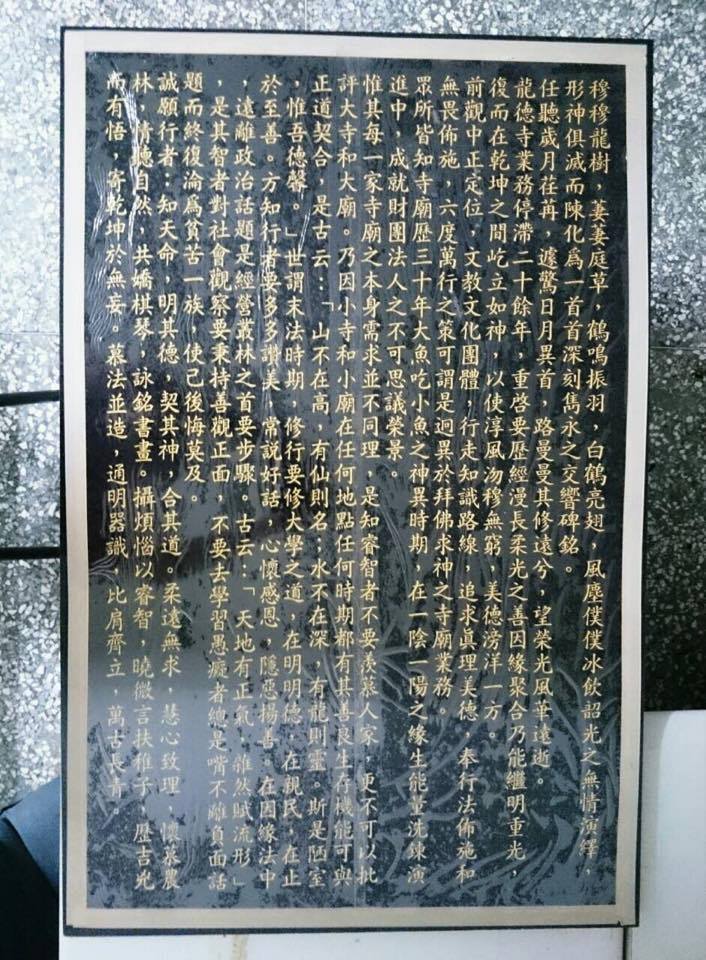 穆穆龍樹，萋萋庭草，鶴鳴振羽，白鶴亮翅，風塵僕僕冰飲韶光之無情演繹，
形神俱滅而陳化為一首首深刻雋永之交響碑銘。
任聽歲月荏苒，遽驚日月異首，路曼曼其修遠兮，望榮光風華遠逝。
龍德寺業務停滯二十餘年，重啓要歷經漫長柔光之善因緣聚合乃能繼明重光，
復而在乾坤之間屹立如神，以使淳風沕穆無窮，美德滂洋一方。
前觀中正定位，文教文化團體，行走知識路線，追求真理美德，奉行法佈施和
無畏佈施，六度萬行之策可謂是迥異於拜佛求神之寺廟業務。
眾所皆知寺廟歷三十年大魚吃小魚之神異時期，在一陰一陽之緣生能量洗鍊演
進中，成就財團法人之不可思議榮景。
惟其每一家寺廟之本身需求並不同理，是知睿智者不要羨慕人家，更不可以批
評大寺和大廟。乃因小寺和小廟在任何地點任何時期都有其善良生存機能可與
正道契合，是古云：「山不在高，有仙則名；水不在深，有龍則靈。斯是陋室
，惟吾德馨。」世謂末法時期，修行要修大學之道，在明明德，在親民，在止
於至善。方知行者要多多讚美，常說好話，心懷感恩，隱惡揚善。在因緣法中
，遠離政治話題是經營叢林之首要步驟。古云：「天地有正氣，雜然賦流形」
，是其智者對社會觀察要秉持善觀正面，不要去學習愚癡者總是嘴不離負面話
題而終復淪為貧苦一族，使己後悔莫及。
誠願行者：知天命，明其德，契其神，合其道。柔遠無求，慧心致理，懷慕農
林，情聽自然，共嬌棋琴，詠銘書畫。攝煩惱以睿智，曉微言扶稚子，歷吉兇
而有悟，寄乾坤於無妄。慕法並造，通明器識，比肩齊立，萬古長青。